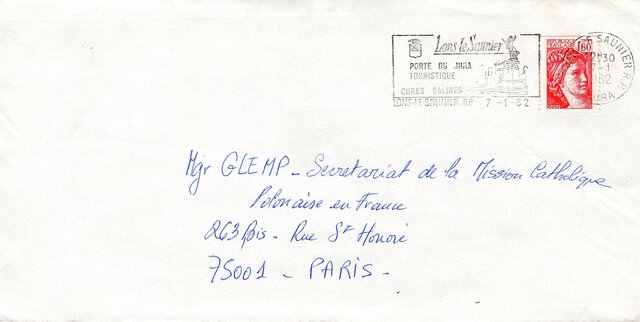 Lons le Saunier
PORTE DU JURA
TOURISTIQUE
CURES SALINES
LONS-LE-SAUNIER RP 7-1-82
REPUBLIQUE
FRANCAISE
1,60
LE SAUNIER R.P.
12H30
7-1
82
JURA
Mgr GLEMP - Secretariat de la Mission Catholique
Polonaise en France
263 Bis - Rue St Honoré
75001 - PARIS -